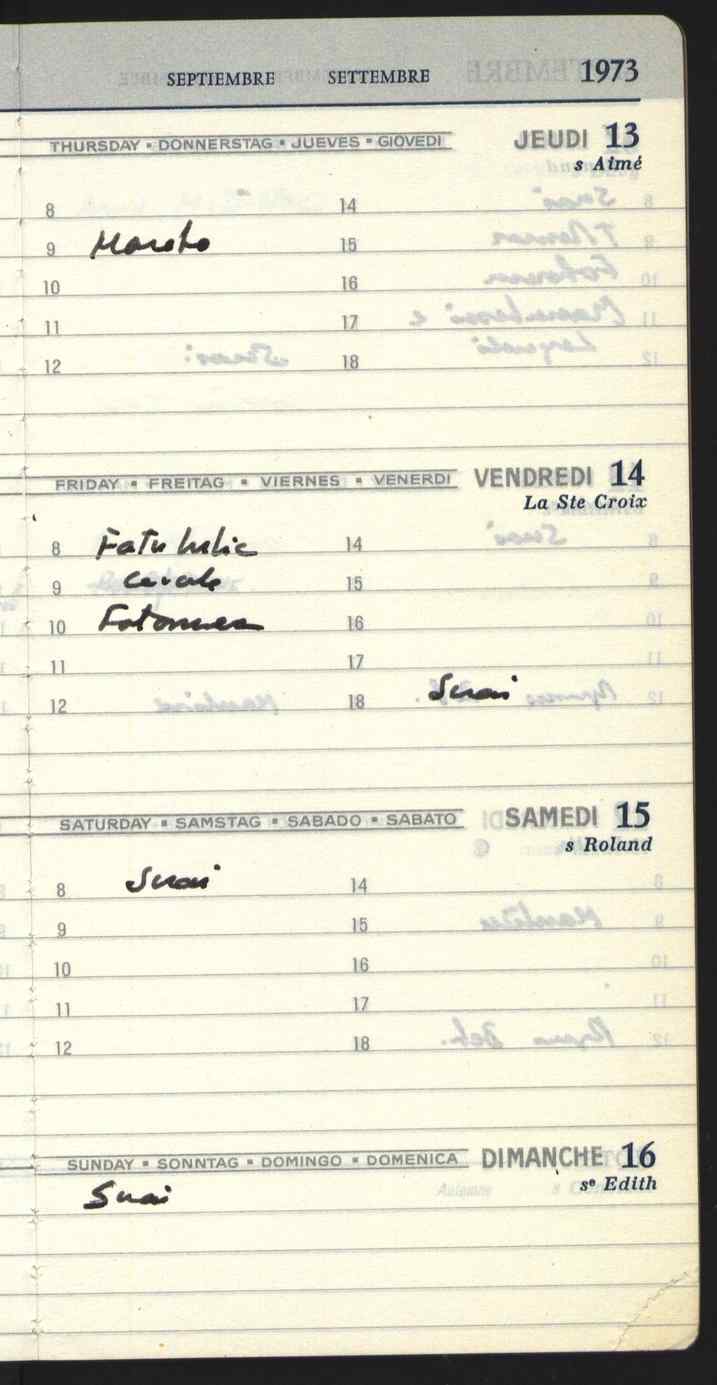 SEPTIEMBRE SETTEMBRE 1973
THURSDAY ▪ DONNERSTAG ▪ JUEVES ▪ GIOVEDI JEUDI 13
s Aimé
8 14
9 15
10 16
11 17
12 18
FRIDAY ▪ FREITAG ▪ VIERNES ▪ VENERDI VENDREDI 14
La Ste Croix
8 14
9 15
10 16
11 17
12 18 Suai
SATURDAY ▪ SAMSTAG ▪ SABADO ▪ SABATO SAMEDI 15
s Roland
8 Suai 14
9 15
10 16
11 17
12 18
SUNDAY ▪ SONNTAG ▪ DOMINGO ▪ DOMENICA DIMANCHE 16
sᵉ Edith
Suai